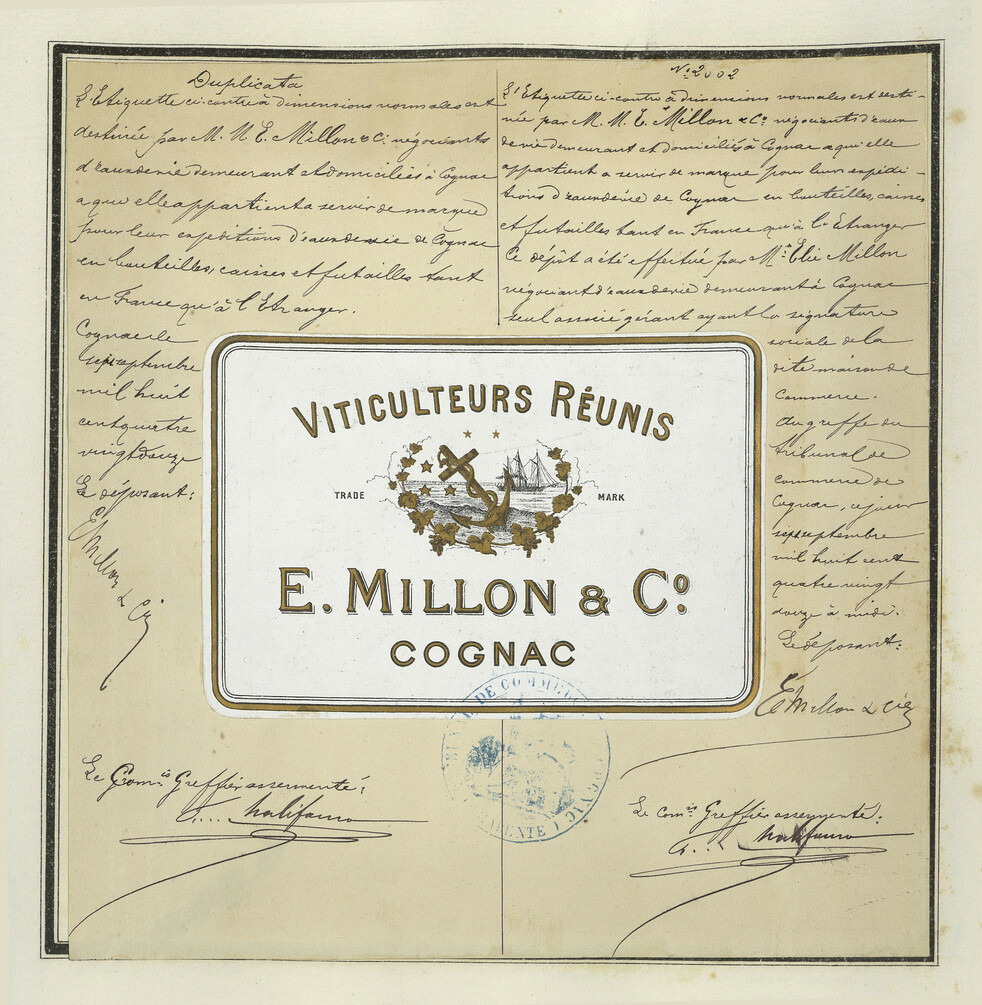 Duplicata
L'Etiquette ci-contre à dimensions normales est
destinée par M. M. E. Millon & Cie négociants
d'eaux devie demeurant et domiciliés à Cognac
a qu elle appartient a servir de marque
pour leur expeditions d'eaux devie de Cognac
en bouteilles, caisses et futailles tant
en France qu'à l'Etranger.
Cognac le
sept septembre
mil huit
cent quatre
vingt douze
Le déposant:
E Millon & Cie
Le Comis Greffier assermenté:
No 2002
L'Etiquette ci-contre à dimensions normales est desti-
née par M. M. E. Millon & Co. négociants d'eaux
devie demeurant et domiciliés à Cognac a qu'elle
appartient a servir de marque pour leur expédi-
tions d'eaux devie de Cognac en bouteilles, caisses
et futailles tant en France qu'à l'Etranger
Ce dépôt a été effectué par Mr. Elie Millon
négociant d'eaux devie demeurant à Cognac
seul associé gérant ayant la signature
sociale de la
dite maison de
Commerce.
Au greffe du
tribunal de
commerce de
Cognac, ce jour
sept septembre
mil huit cent
quatre vingt
douze à midi.
Le déposant:
E Millon & Cie
Le comis Greffier assermenté:
VITICULTEURS RÉUNIS
TRADE MARK
E. MILLON & Co
COGNAC
DE COMMERCE